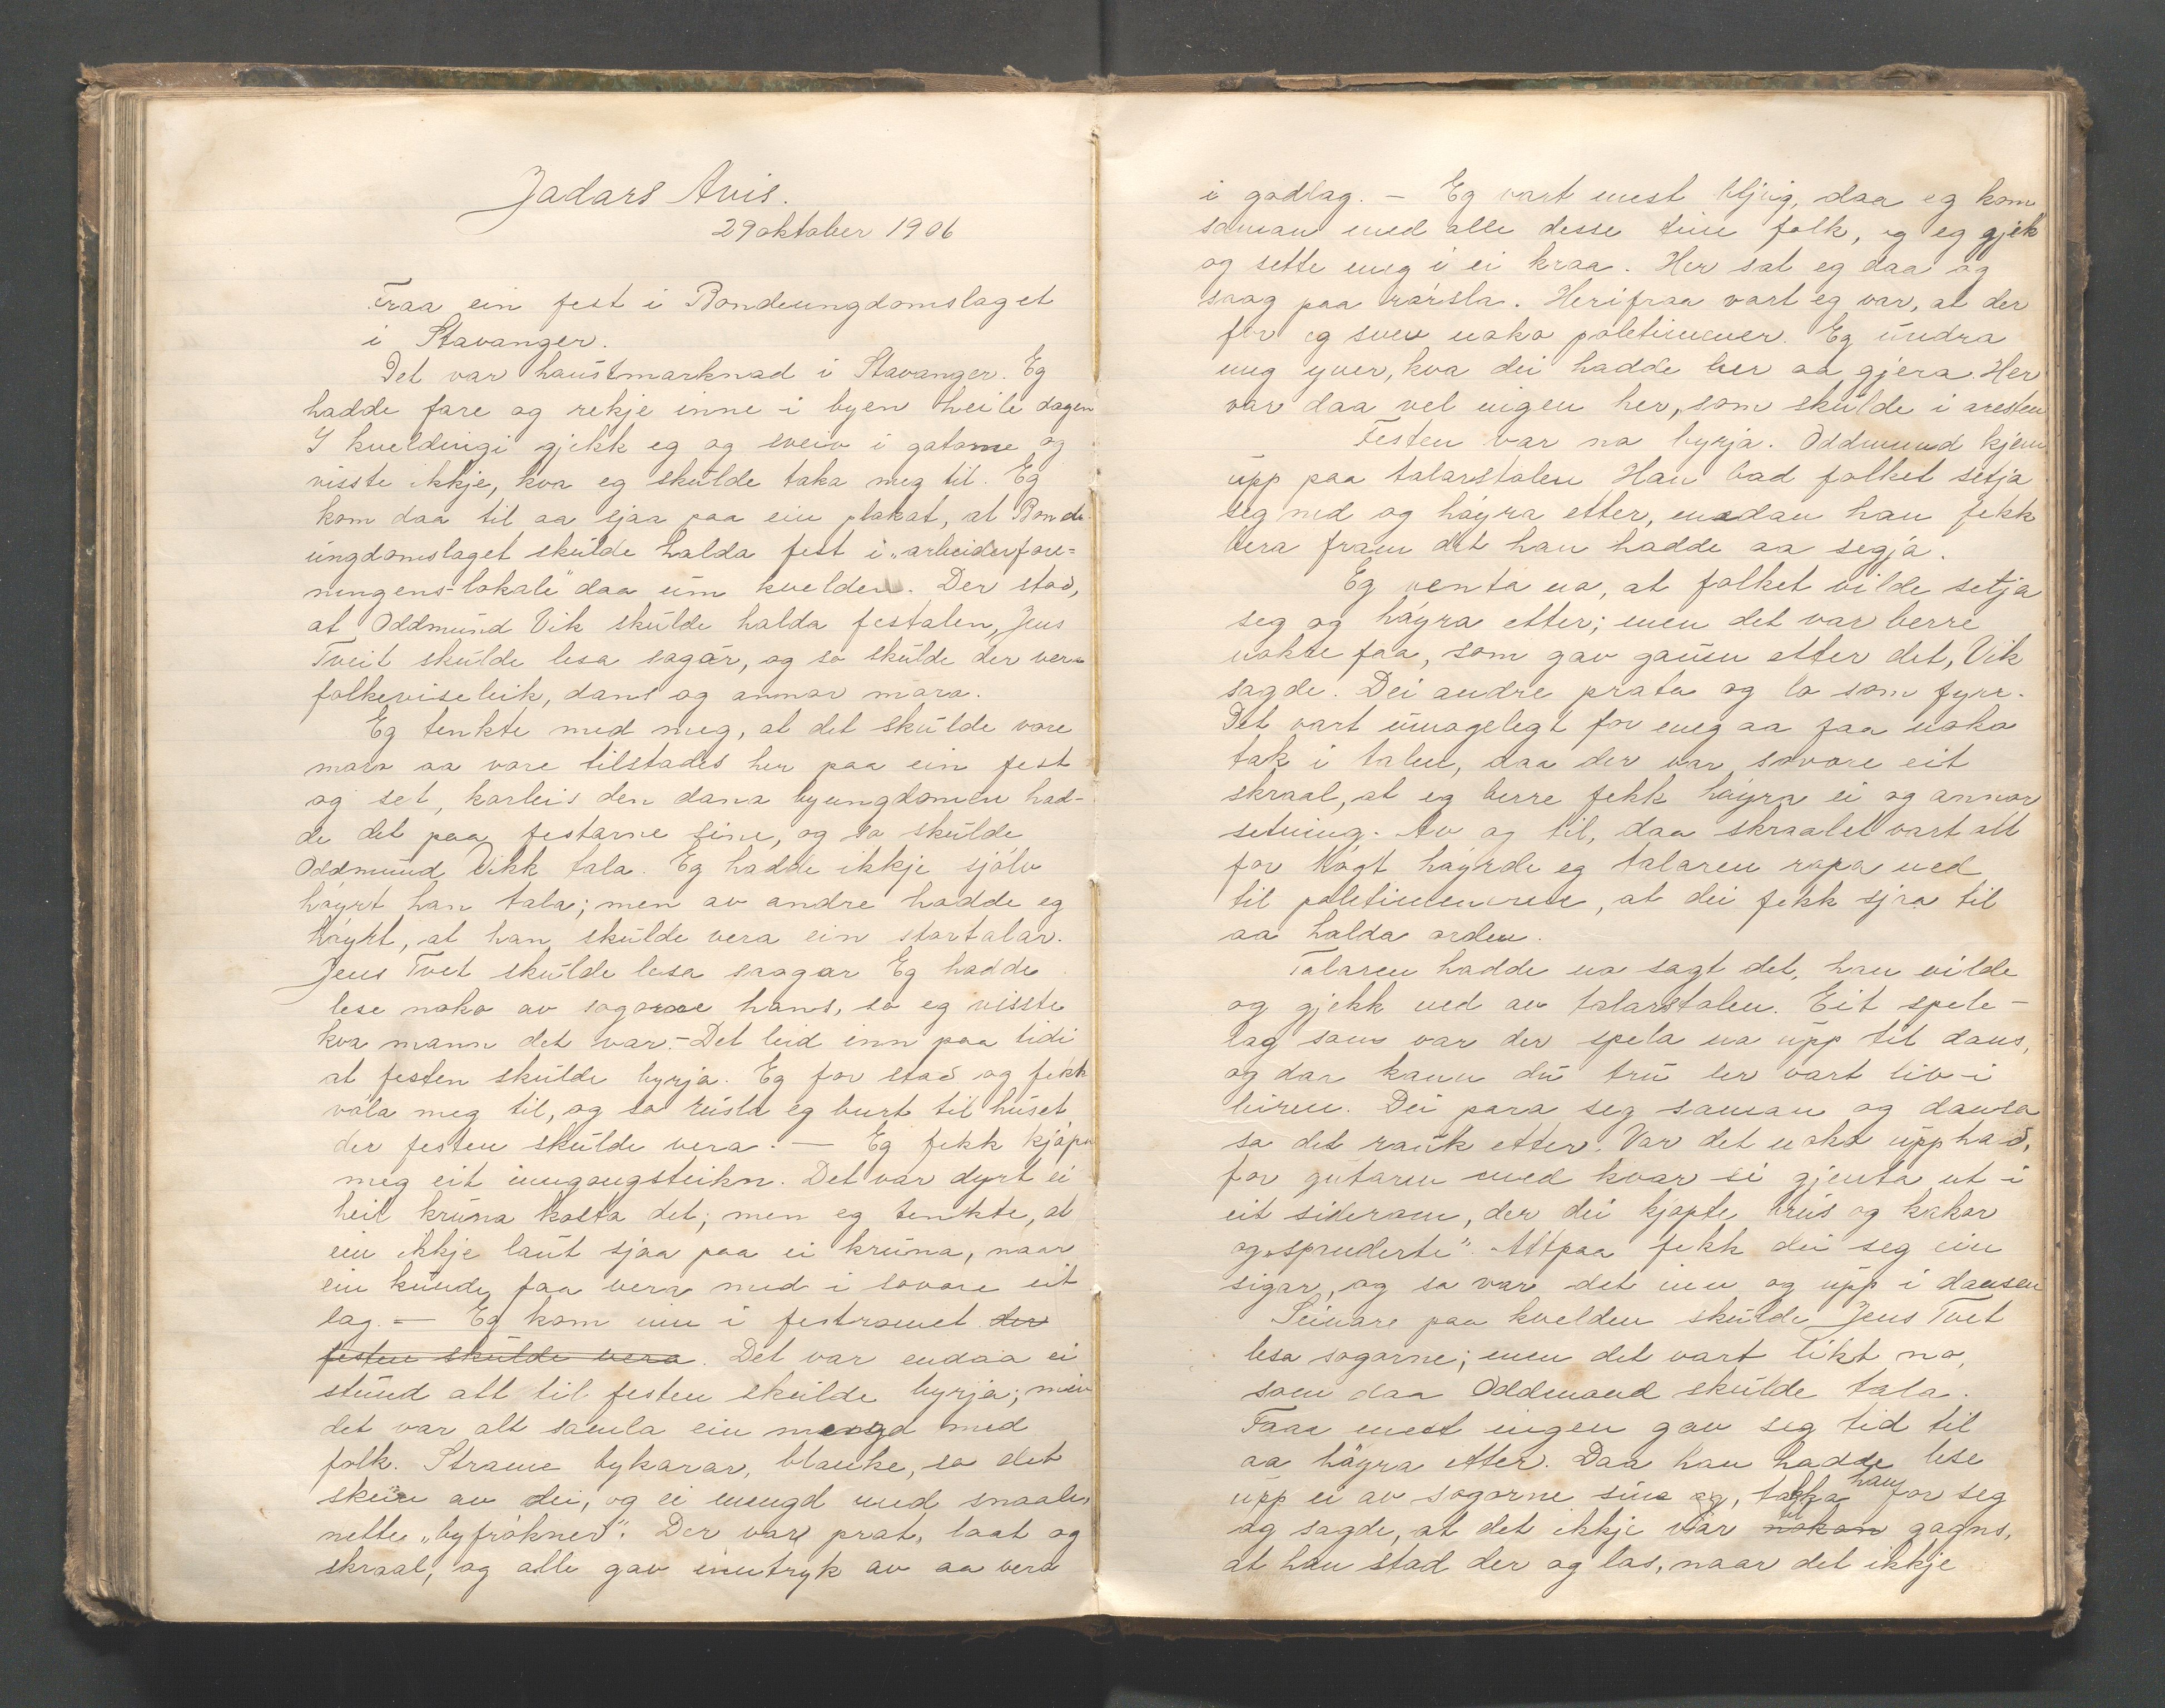 Jadars Avis.
29 oktober 1906
Fraa ein fest i Bondeungdomslaget
i Stavanger.
Det var haustmarknad i Stavanger. Eg
hadde fare og rekje inne i byen heile dagen
I kveldingi gjekk eg og sveiv i gatome og
visste ikkje, kva eg skulde taka meg til. Eg
kom daa til aa sjaa paa ein plakat, at Bonde
ungdomslaget skulde halda fest i „arbeiderfore=
ningens lokale" daa um kvelden. Der stod,
at Oddmund Vik skulde halda festalen, Jens
Tveit skulde lesa sogar, og so skulde der vera
folkeviseleik, dans og annar mora.
Eg tenkte med meg, at det skulde vore
mora aa vore tilstades her paa ein fest
og set, korleis den dana byungdomen had-
de det paa festarne sine, og so skulde
Oddmund Vikk tala. Eg hadde ikkje sjølv
høyrt han tala; men av andre hadde eg
høyrt, at han skulde vera ein stortalar.
Jens Tvet skulde lesa soogar Eg hadde
lese noko av sogorne hans, so eg visste
kva mann det var. - Det leid inn paa tidi
at festen skulde byrja. Eg for stad og fekk
vola meg til, og so rusla eg burt til huset
der festen skulde vera. — Eg fekk kjøpa
meg eit inngongsteikn. Det var dyrt ei
heil kruna kosta det; men eg tenkte, at
ein ikkje laut sjaa paa ei kruna, naar
ein kunde faa vera med i sovore eit
lag. — Eg kom inn i festromet der
festen skulde vera. Det var endaa ei
stund att til festen skulde byrja; men
det var alt samla ein mengd med
folk. Strame bykarar, blanke, so det
skein av dei, og ei mengd med snaale,
nette „byfrøkner". Der var prat, laat og
skraal, og alle gav inntryk av aa vera
i godlag. — Eg vart mest bljug, daa eg kom
saman med alle desse fine folk, og eg gjek
og sette meg i ei kraa. Her sat eg daa og
saag paa rørsla. Herifraa vart eg var, at der
for eg sveiv noko politimener. Eg undra
meg yver, kva dei hadde her aa gjera. Her
var daa vel ingen her, som skulde i aresten
Festen var no byrja. Oddmund kjem
upp paa talarstolen Han bad folket setja
seg ned og høyra etter, medan han fekk
bera fram det han hadde aa segja.
Eg venta no, at folket vilde setja
seg og høyra etter; men det var berre
nokre faa, som gav gaum etter det, Vik
sagde. Dei andre prata og lo som fyrr.
Det vart umogelegt for meg aa faa noko
tak i talen, daa der var sovore eit
skraal, at eg berre fekk høyra ei og annor
setning. Av og til, daa skraalet vart alt
for høgt høyrde eg talaren ropa ned
til politimennen, at dei fekk sjaa til
aa halda orden.
Talaren hadde no sagt det, han vilde
og gjekk ned av talarstolen. Eit spele-
lag som var der spela no upp til dans,
og daa kann du tru her vart liv i
leiren. Dei para seg saman og dansa
so det rauk etter. Var det noko upphad,
for gutarne med kvar si gjenta ut i
eit siderom, der dei kjøpte brus og kakor
og „spruderte". Attpaa fekk dei seg ein
sigar, og so var det inn og upp i dansen
Seinare paa kvelden skulde Jens Tvet
lesa sogorne; men det vart likt no,
som daa Oddmund skulde tala.
Faaa mest ingen gav seg tid til
aa høyra etter. Daa han hadde lese
upp ei av sogorne sine og, takka han for seg
og sagde, at det ikkje var nokon til gagns,
at han stod der og las, naar det ikkje